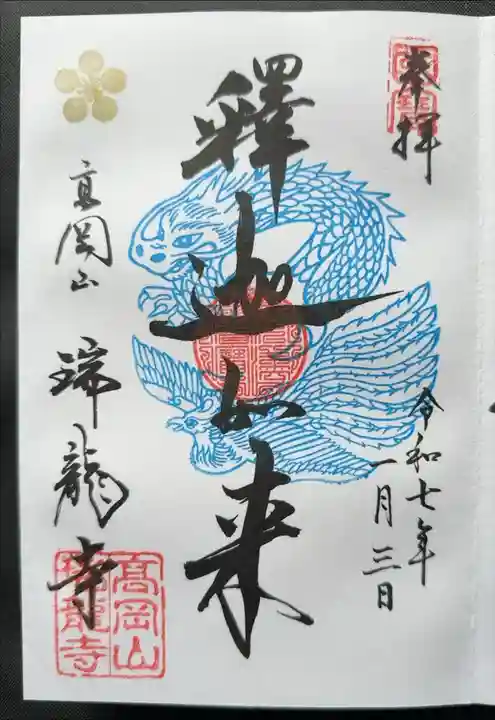 奉拝
令和七年
一月三日
釋迦如来
高岡山 瑞龍寺
髙岡山
瑞龍寺